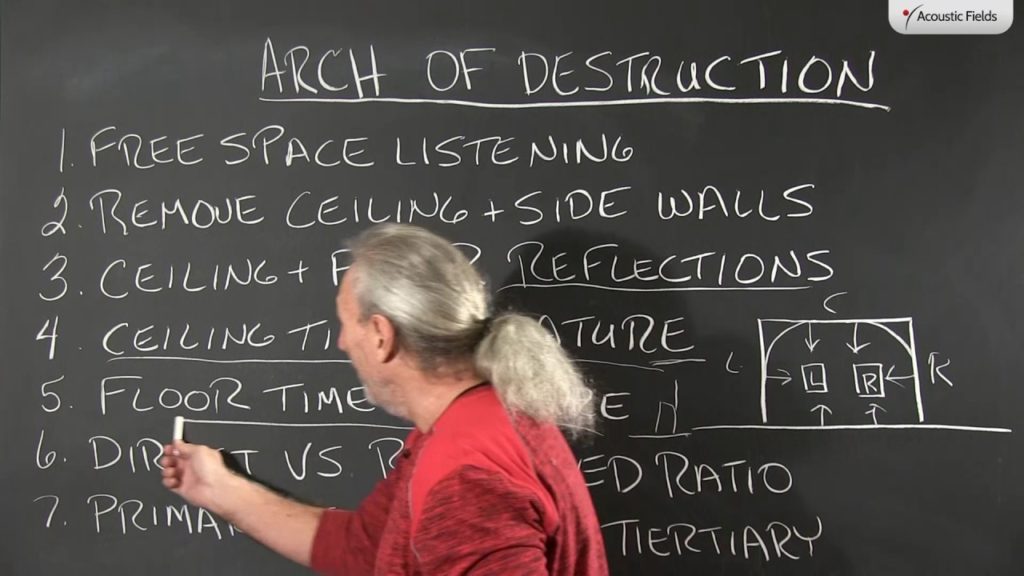 Acoustic Fields
ARCH OF DESTRUCTION
1. FREE SPACE LISTENING
2. REMOVE CEILING + SIDE WALLS
3. CEILING + REFLECTIONS
4. CEILING
5. FLOOR TIME
6. VS. RATIO
7. TIERTIARY
C
L
L
R
R